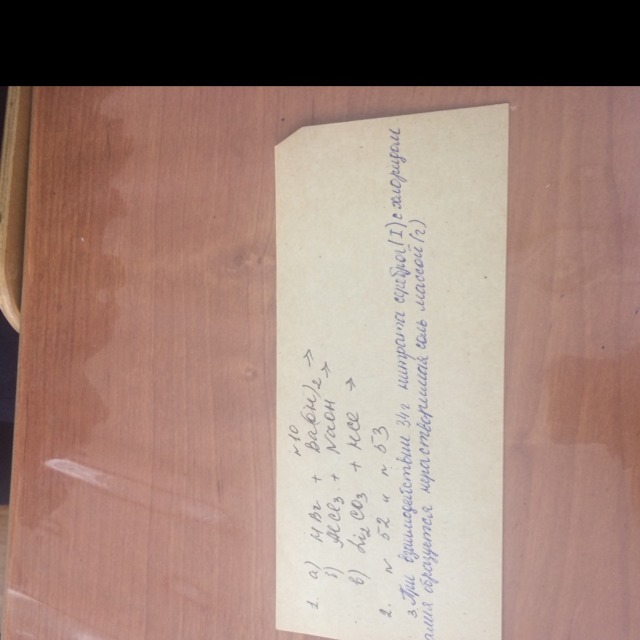 №10
1. а) HBr + Ba(OH)2 →
б) AlCl3 + NaOH →
в) Li2CO3 + HCl →
2. № 52 и № 53
3. При взаимодействии 34г нитрата серебра(I) с хлоридом
алия образуется нерастворимая соль массой (г)